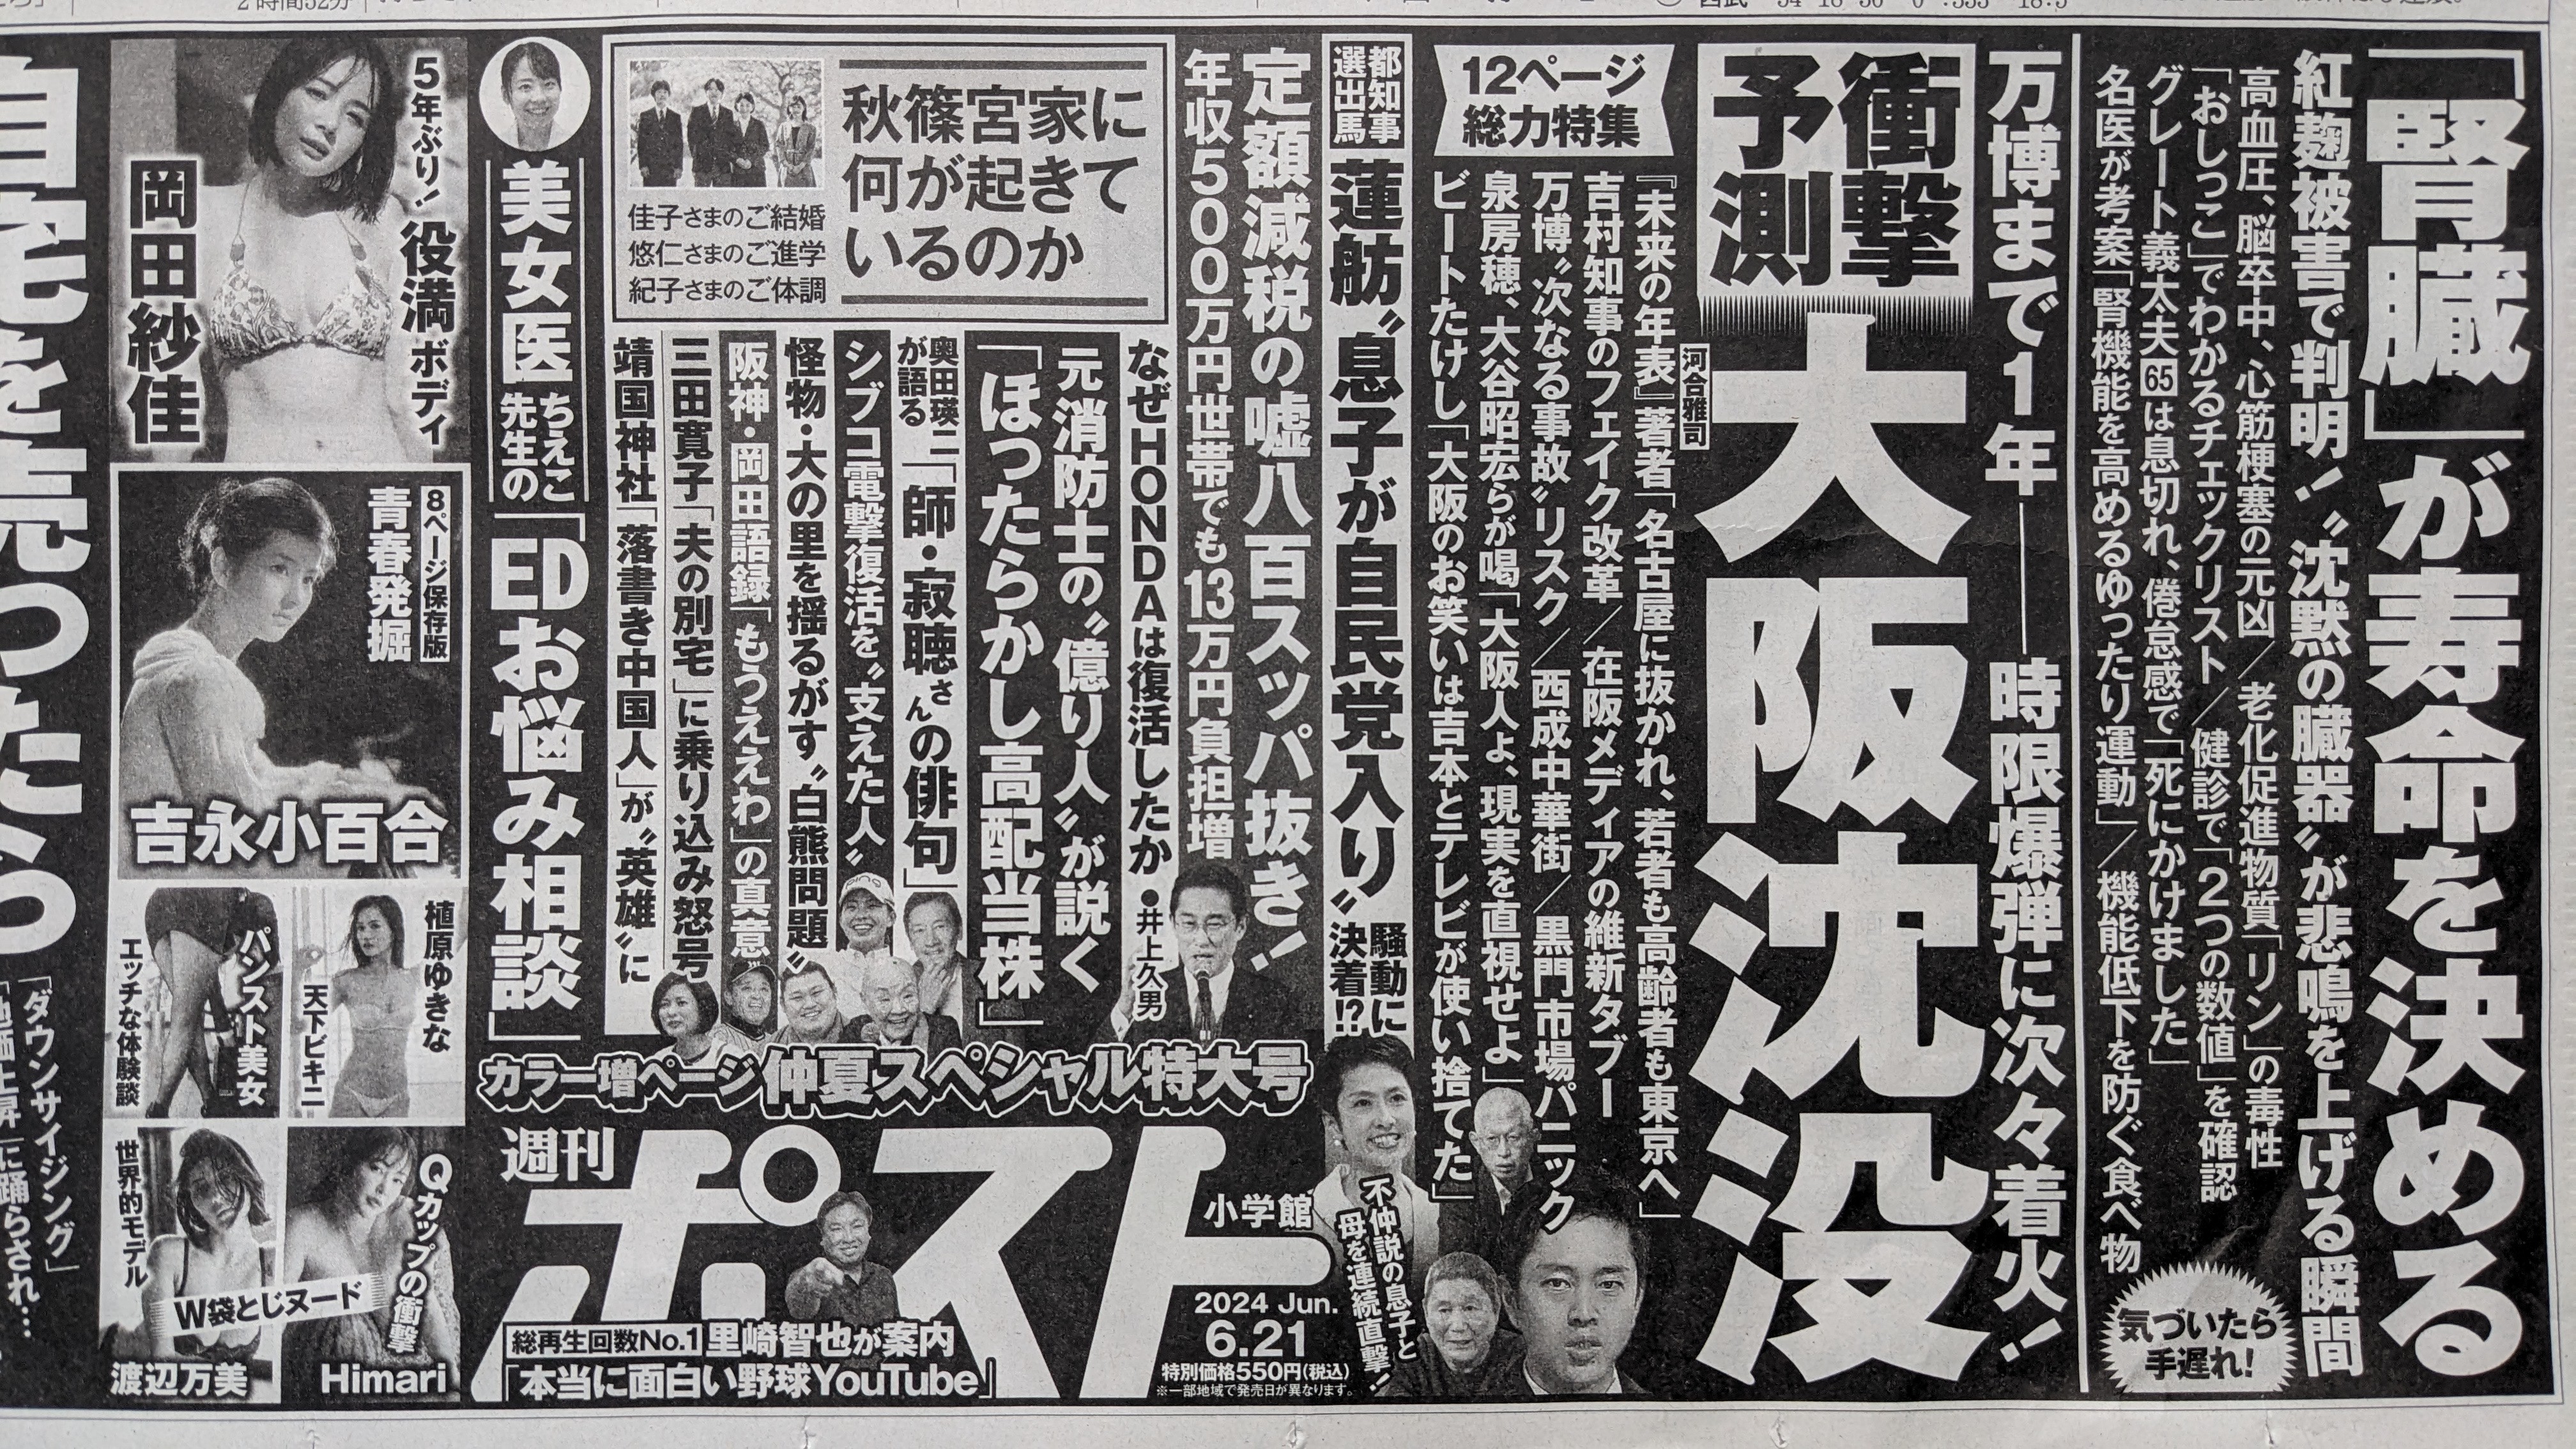 「腎臓」が寿命を決める
紅麹被害で判明！〝沈黙の臓器〟が悲鳴を上げる瞬間
高血圧、脳卒中、心筋梗塞の元凶／老化促進物質「リン」の毒性
「おしっこ」でわかるチェックリスト／健診で「2つの数値」を確認
グレート義太夫65は息切れ、倦怠感で「死にかけました」
名医が考案「腎機能を高めるゆったり運動」／機能低下を防ぐ食べ物
気づいたら
手遅れ！
万博まで1年――時限爆弾に次々着火！
衝撃
予測
大阪沈没
12ページ
総力特集
河合雅司
『未来の年表』著者「名古屋に抜かれ、若者も高齢者も東京へ」
吉村知事のフェイク改革／在阪メディアの維新タブー
万博〝次なる事故〟リスク／西成中華街／黒門市場パニック
泉房穂、大谷昭宏らが喝「大阪人よ、現実を直視せよ」
ビートたけし「大阪のお笑いは吉本とテレビが使い捨てた」
都知事
選出馬
蓮舫〝息子が自民党入り〟
騒動に
決着!?
不仲説の息子と
母を連続直撃！
定額減税の嘘八百スッパ抜き！
年収500万円世帯でも13万円負担増
なぜHONDAは復活したか・井上久男
元消防士の〝億り人〟が説く
「ほったらかし高配当株」
奥田瑛二
が語る
「師・寂聴さんの俳句」
シブコ電撃復活を〝支えた人〟
怪物・大の里を揺るがす〝白熊問題〟
阪神・岡田語録「もうええわ」の真意
三田寛子「夫の別宅」に乗り込み怒号
靖国神社「落書き中国人」が〝英雄〟に
秋篠宮家に
何が起きて
いるのか
佳子さまのご結婚
悠仁さまのご進学
紀子さまのご体調
美女医
ちえこ
先生の
「EDお悩み相談」
カラー増ページ 仲夏スペシャル特大号
週刊
ポスト
小学館
2024 Jun.
6.21
特別価格550円(税込)
※一部地域で発売日が異なります。
総再生回数No.1 里崎智也が案内
「本当に面白い野球YouTube」
5年ぶり！役満ボディ
岡田紗佳
8ページ保存版
青春発掘
吉永小百合
植原ゆきな
天下ビキニ
パンスト美女
エッチな体験談
Qカップの衝撃
Himari
世界的モデル
渡辺万美
W袋とじヌード
自宅を売ったら
「ダウンサイジング」
「地価上昇」に踊らされ…
2時間52分
西武 34 18 30 0 .535 18.5